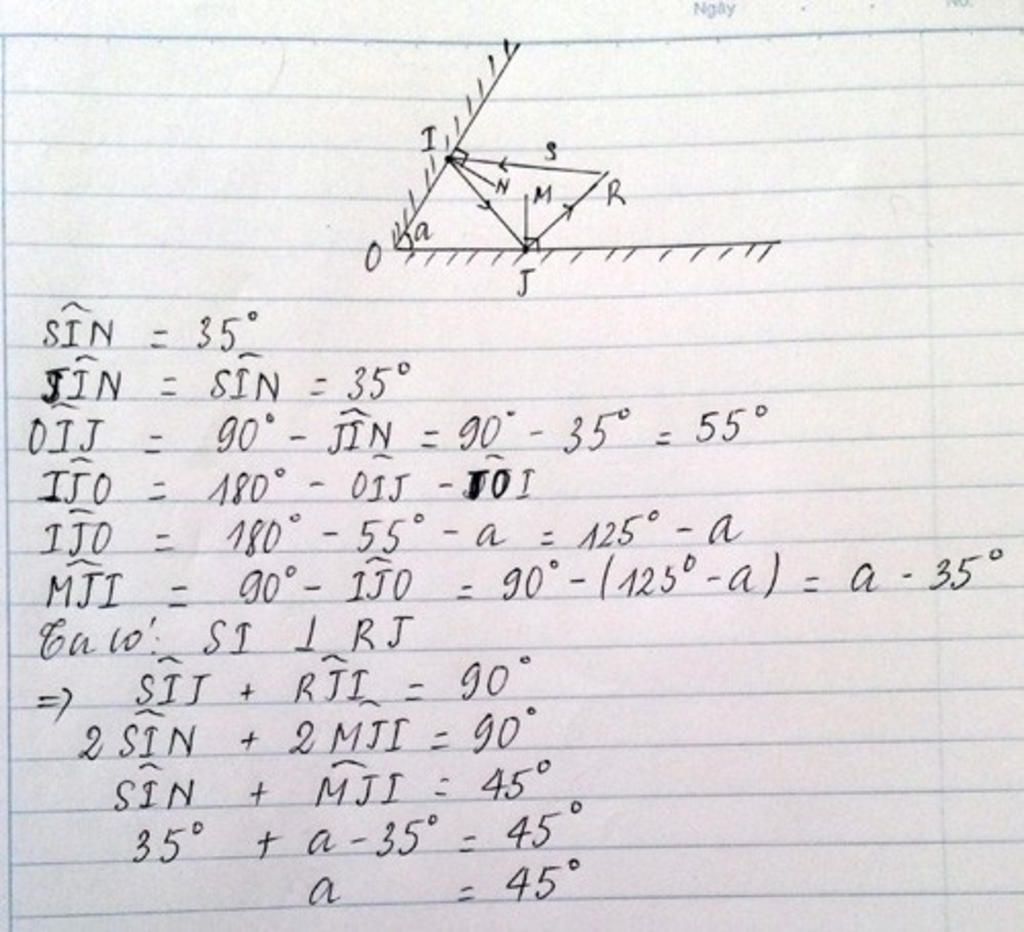 Ngày
No.
I
S
N
M
R
O
a
J
SÎN = 35°
JÎN = SÎN = 35°
OÎJ = 90° - JÎN = 90° - 35° = 55°
IĴO = 180° - OÎJ - JÔI
IĴO = 180° - 55° - a = 125° - a
MĴI = 90° - IĴO = 90° - (125° - a) = a - 35°
Ta có: SI ⊥ RJ
=> SÎJ + RĴI = 90°
2 SÎN + 2 MĴI = 90°
SÎN + MĴI = 45°
35° + a - 35° = 45°
a = 45°